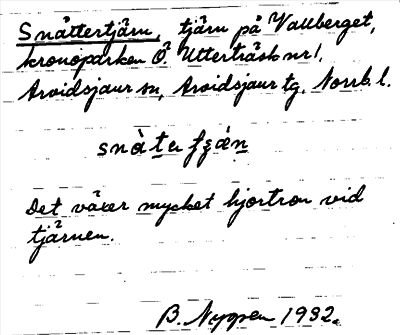 Snåttertjärn, tjärn på Vallberget,
kronoparken Ö. Utterträsk nr 1,
Arvidsjaur sn, Arvidsjaur tg, Norrb. l.
Det växer mycket hjortron vid
tjärnen.
B. Nygren 1932.